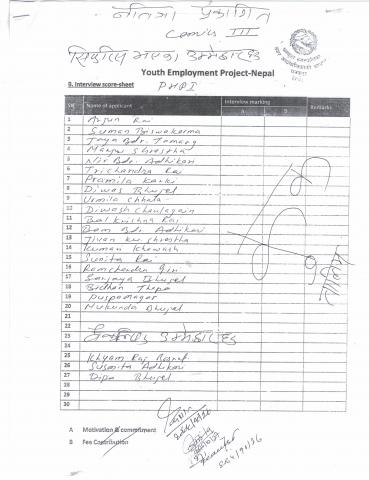 नतिजा प्रकाशित
III
Youth Employment Project-Nepal
B. Interview score-sheet
PHPI
SN Name of applicant Interview marking Remarks
A B
1 Arjun Rai
2 Suman Biswakarma
3 Jaya Bdr. Tamang
4 Manju Shrestha
5 Nir Bdr. Adhikari
6 Trichandra Rai
7 Pramila Karki
8 Diwas Bhujel
9 Urmila Chhata
10 Diwash Chaulagain
11 Bal Krishna Rai
12 Dam Bdr. Adhikari
13 Jivan kr. Shrestha
14 Kuman Khawash
15 Sunita Rai
16 Ramchandra Giri
17 Sanjaya Bhujel
18 Bidhan Thapa
19 Puspa Magar
20 Mukunda Bhujel
21
22
23 वैकल्पिक उम्मेदवार
24
25 Khyam Raj Basnet
26 Susmita Adhikari
27 Dipa Bhujel
28
29
30
A Motivation & commitment
B Fee Contribution